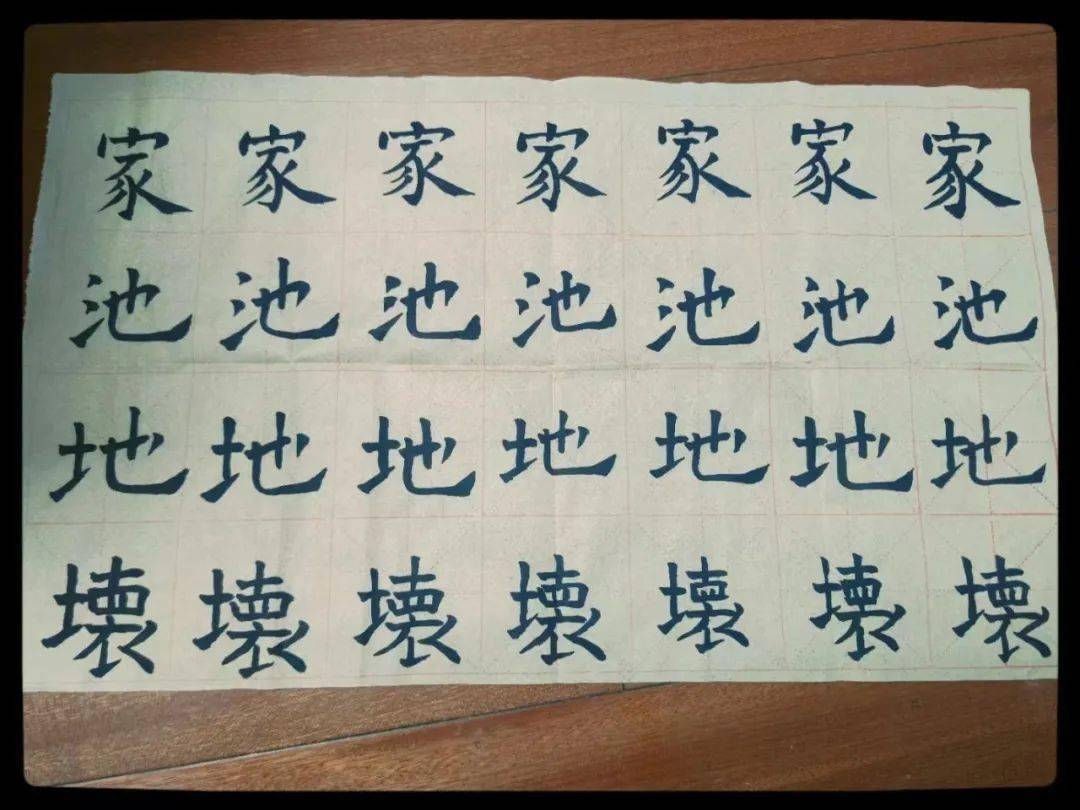 家家家家家家家
池池池池池池池
地地地地地地地
壞壞壞壞壞壞壞